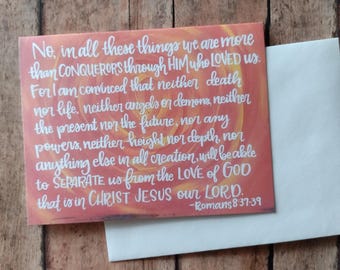 No, in all these things we are more
than CONQUERORS through HIM who LOVED us.
For I am convinced that neither death
nor life, neither angels or demons, neither
the present nor the future, nor any
powers, neither height nor depth, nor
anything else in all creation, will be able
to SEPARATE us from the LOVE of GOD
that is in CHRIST JESUS our LORD.
-Romans 8:37-39